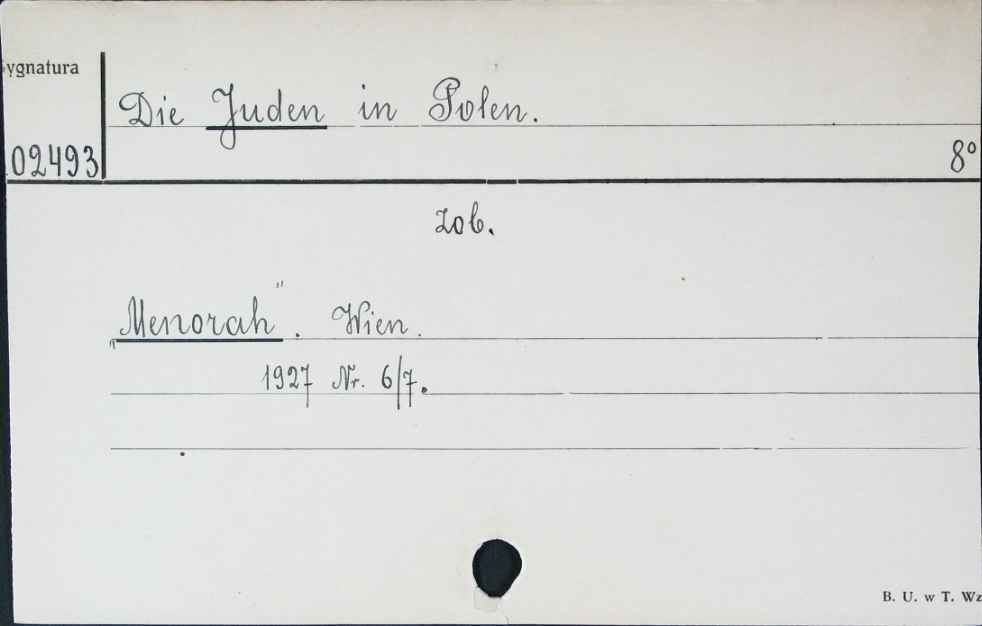 ygnatura
Die Juden in Polen.
02493
8°
zob.
„Menorah". Wien.
1927 Nr. 6/7.
B. U. w T. Wz